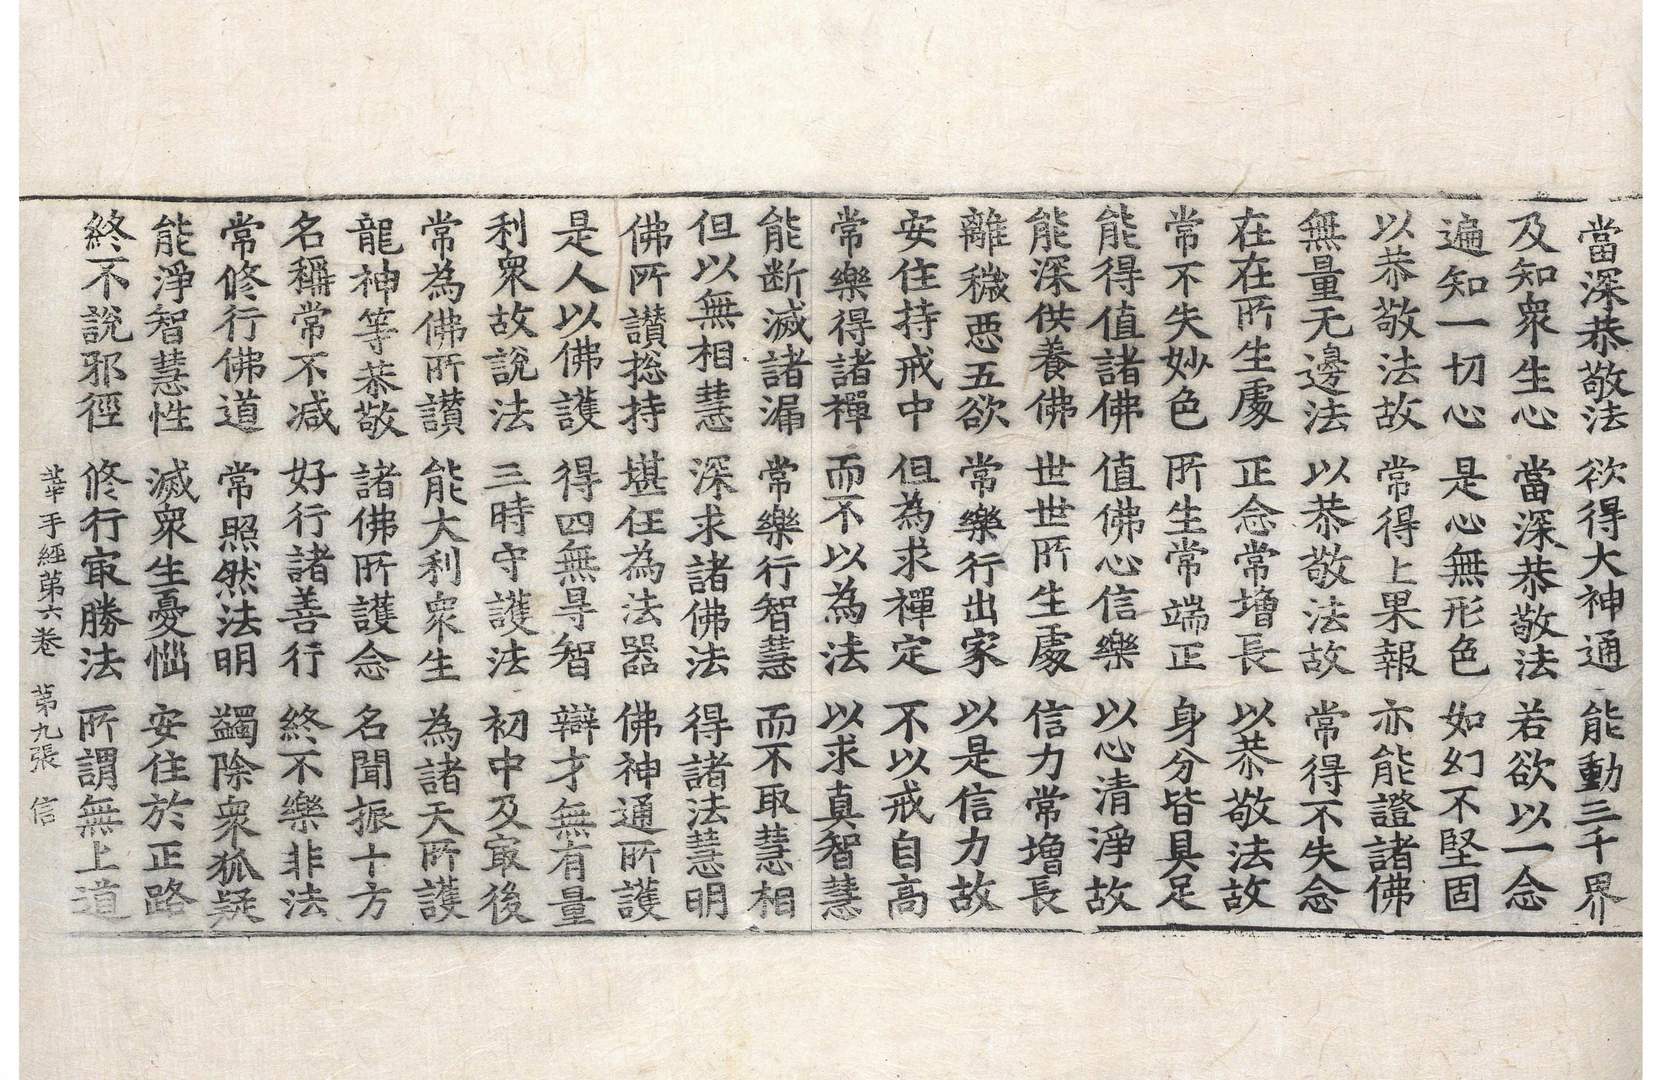 當深恭敬法 欲得大神通 能動三千界
及知衆生心 當深恭敬法 若欲以一念
遍知一切心 是心無形色 如幻不堅固
以恭敬法故 常得上果報 亦能證諸佛
無量无邊法 以恭敬法故 常得不失念
在在所生處 正念常增長 以恭敬法故
常不失妙色 所生常端正 身分皆具足
能得值諸佛 值佛心信樂 以心清淨故
能深供養佛 世世所生處 信力常增長
離穢惡五欲 常樂行出家 以是信力故
安住持戒中 但為求禪定 不以戒自高
常樂得諸禪 而不以為法 以求真智慧
能断滅諸漏 常樂行智慧 而不取慧相
但以無相慧 深求諸佛法 得諸法慧明
佛所讃捴持 堪任為法器 佛神通所護
是人以佛護 得四無㝵智 辯才無有量
利衆故說法 三時守護法 初中及㝡後
常為佛所讃 能大利衆生 為諸天所護
龍神等恭敬 諸佛所護念 名聞振十方
名稱常不減 好行諸善行 終不樂非法
常修行佛道 常照然法明 蠲除衆狐疑
能淨智慧性 滅衆生憂惱 安住於正路
終不說邪徑 修行㝡勝法 所謂無上道
華手經第六卷 第九張 信